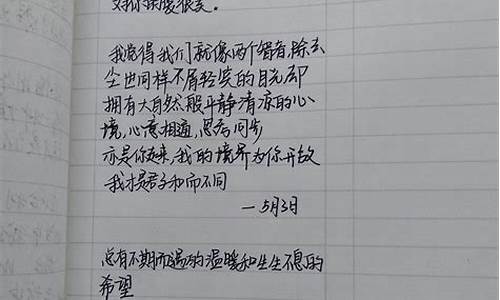 对你深感很美。
我觉得我们就像两个智者，除去
尘世同样不屑轻笑的目光却
拥有大自然般平静清凉的心
境，心意相通，思危同步
亦是你走来，我的境界为你开放
我才是君子和而不同
— 5月3日
总有不期而遇的温暖和生生不息的
希望